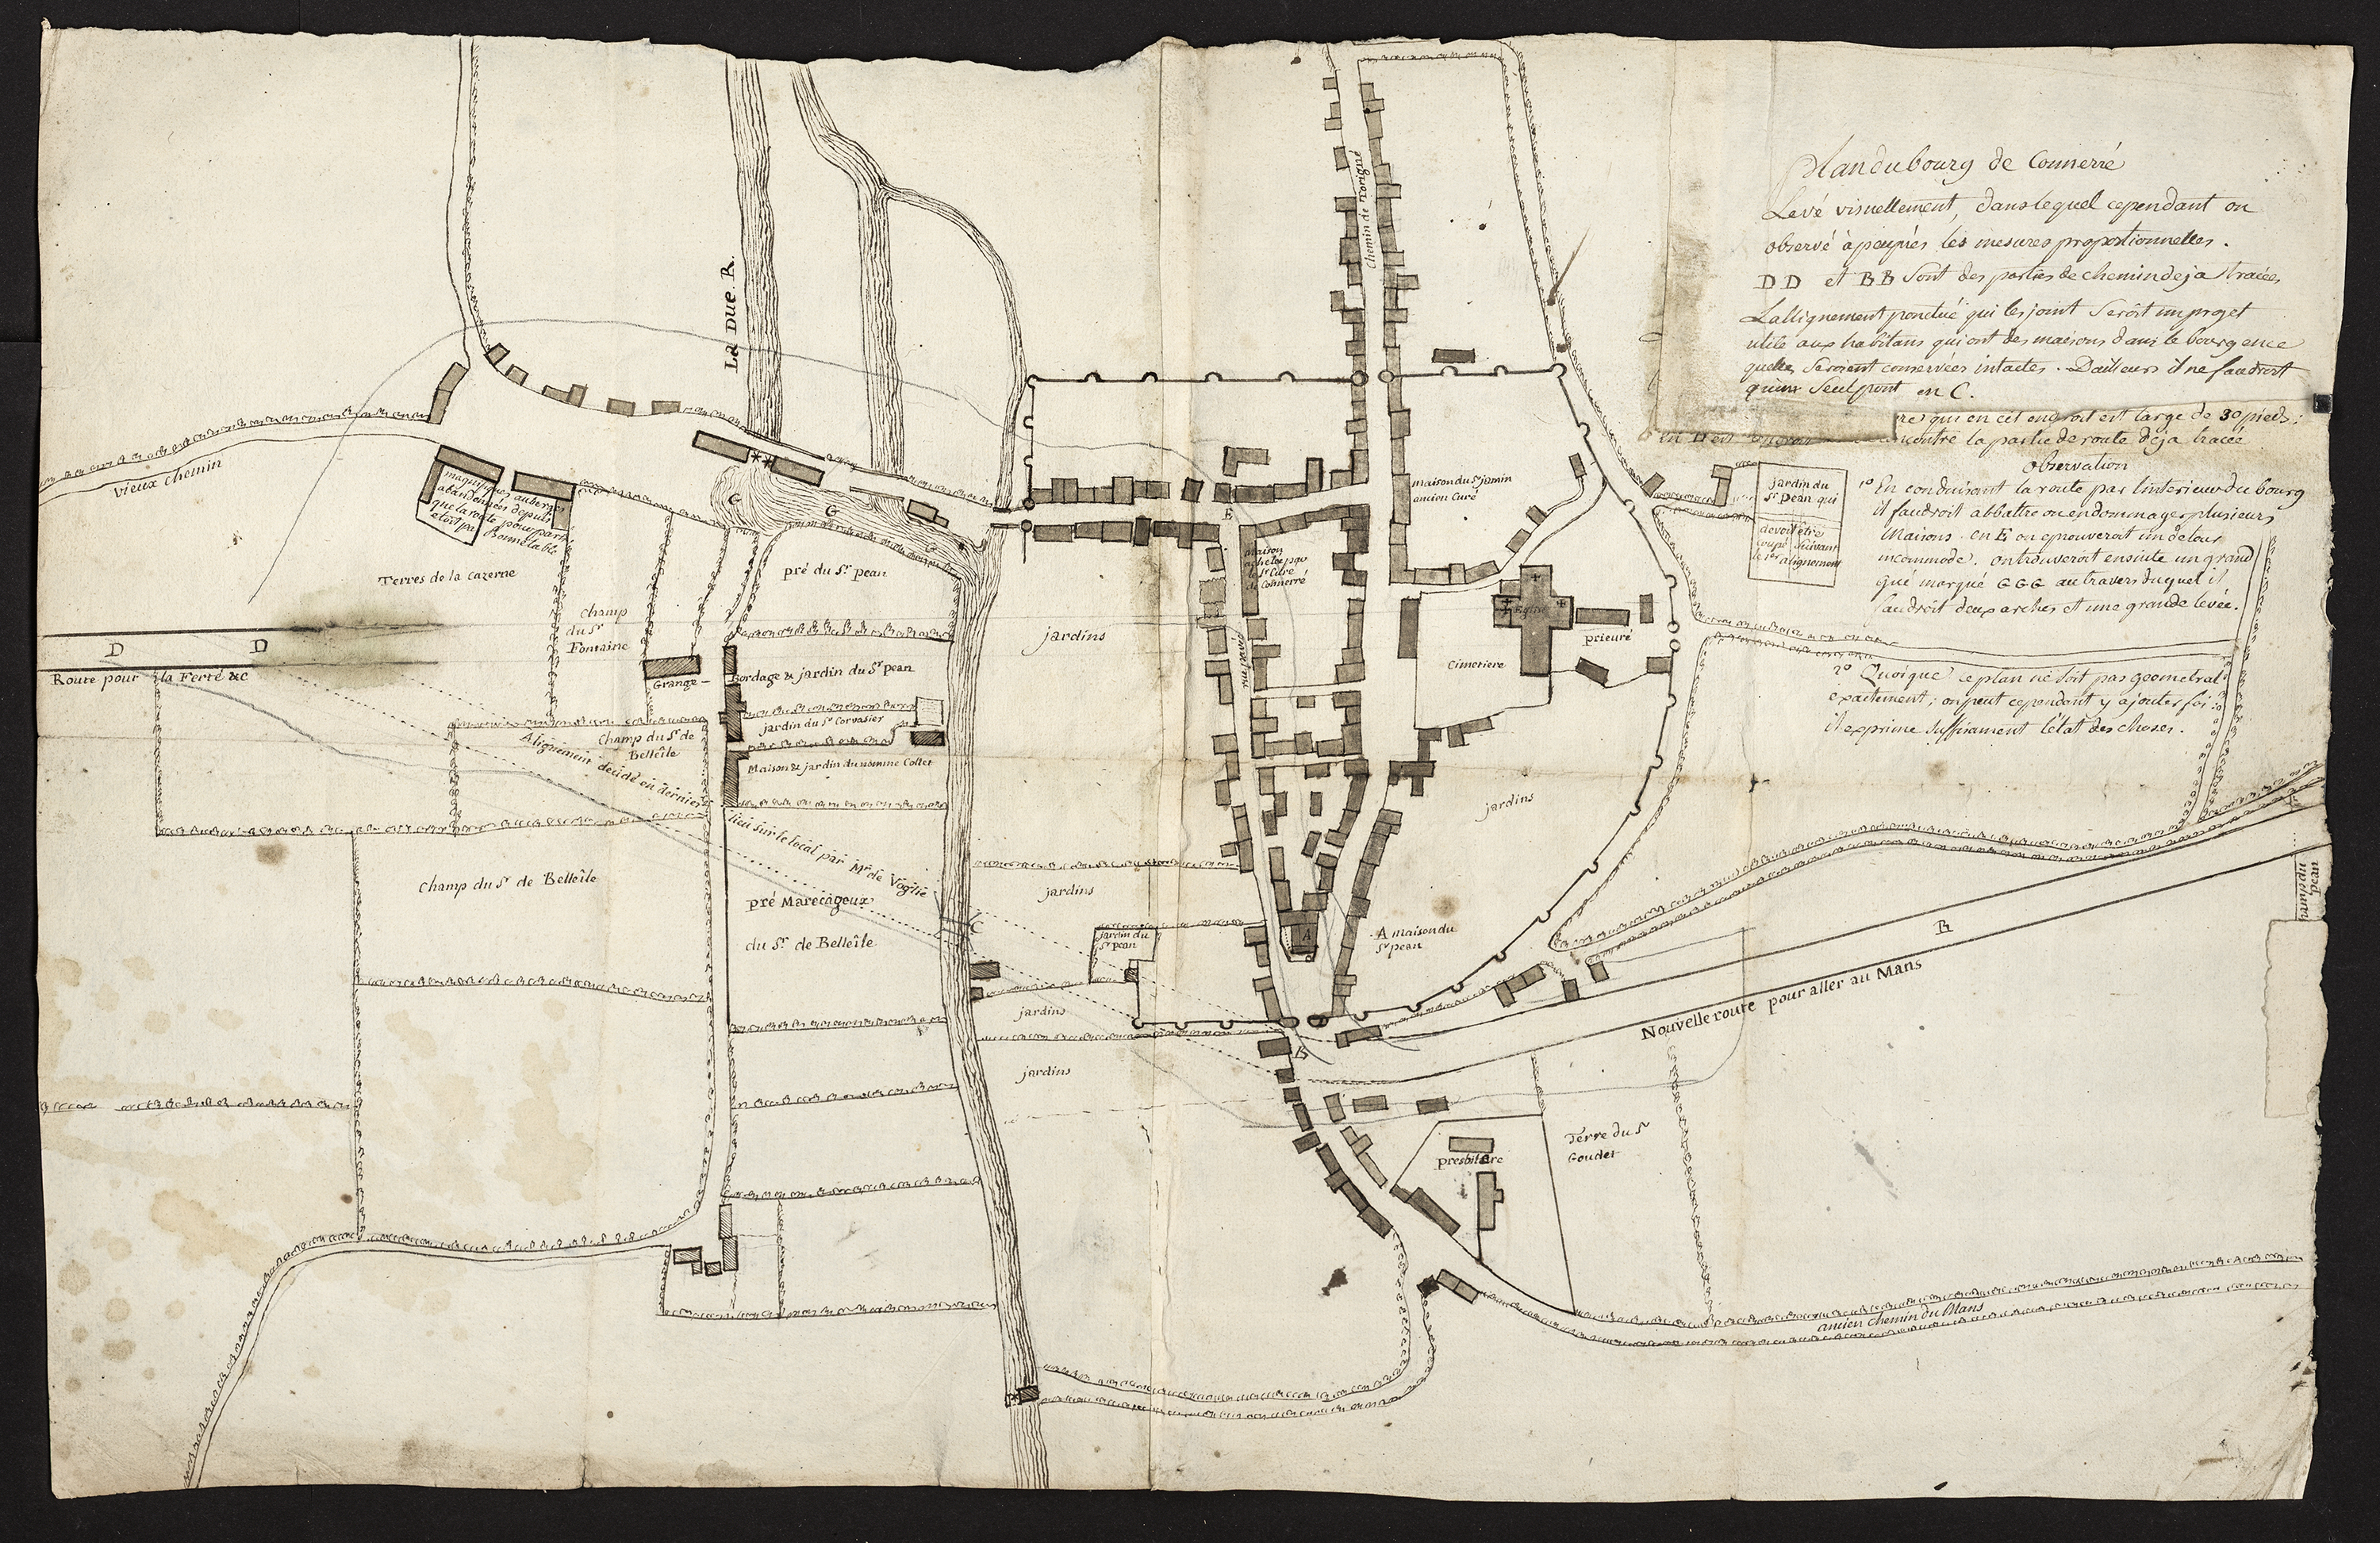 Plan du bourg de Connerré
Levé visuellement, dans lequel cependant on
observé à peuprés les mesures proportionnelles.
DD et BB sont des parties de chemin deja tracées
L'allignement ponctué qui les joint seroit un projet
utile aux habitans qui ont des maisons dans le bourg en ce
quelles seroient conservées intactes. D'ailleurs il ne faudroit
qu'un seul pont en C.
qui en cet endroit est large de 30 pieds;
rencontre la partie de route déja tracée
observation
1º En conduisant la route par l'interieur du bourg
il faudroit abbattre ou endommager plusieurs
Maisons. en E on eprouveroit un detour
incommode. on trouveroit ensuite un grand
gué marqué GGG au travers duquel il
faudroit deux arches et une grande levée.
2º Quoique ce plan ne soit pas geometral
exactement; on peut cependant y ajouter foi:
il exprime suffisament l'état des choses.
jardin du
Sr pean qui
devoit être
coupé suivant
le 1er alignement
LA DUE R.
Chemin de Torigné
vieux chemin
magnifiques auberges
abandonnées depuis
que la route pour paris
etoit par Bonnetable
Terres de la cazerne
G
G
G
pré du Sr pean
E
maison du Sr jamin
ancien Curé
Maison
le Sr Curé
de Connerré
champ
du Sr
Fontaine
jardins
Eglise
prieuré
Cimetiere
D
D
Route pour la Ferté &c
Grange
Bordage & jardin du Sr pean
jardin du Sr Corvasier
Champ du Sr de
Belleîle
Maison & jardin du nommé Collet
Alignement decidé en dernier
lieu sur le local par Mr de Voglie
jardins
Champ du Sr de Belleîle
pré Marecageux
du Sr de Belleîle
jardins
C
jardin du
Sr pean
A
A maison du
Sr pean
champ du
Sr pean
B
Nouvelle route pour aller au Mans
jardins
B
jardins
presbitere
Terre du Sr
Goudet
ancien chemin du Mans